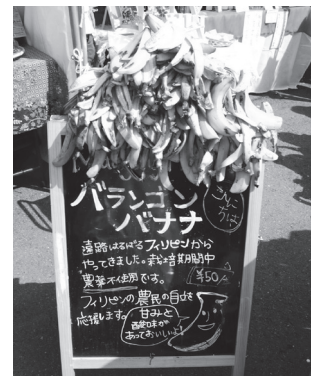 バランゴン
バナナ
こんにちは
遠路はるばるフィリピンから
やってきました。栽培期間中
農薬不使用です。
¥50
フィリピンの農民の自立を
応援します。
甘みと
酸味が
あっておいしいよ!